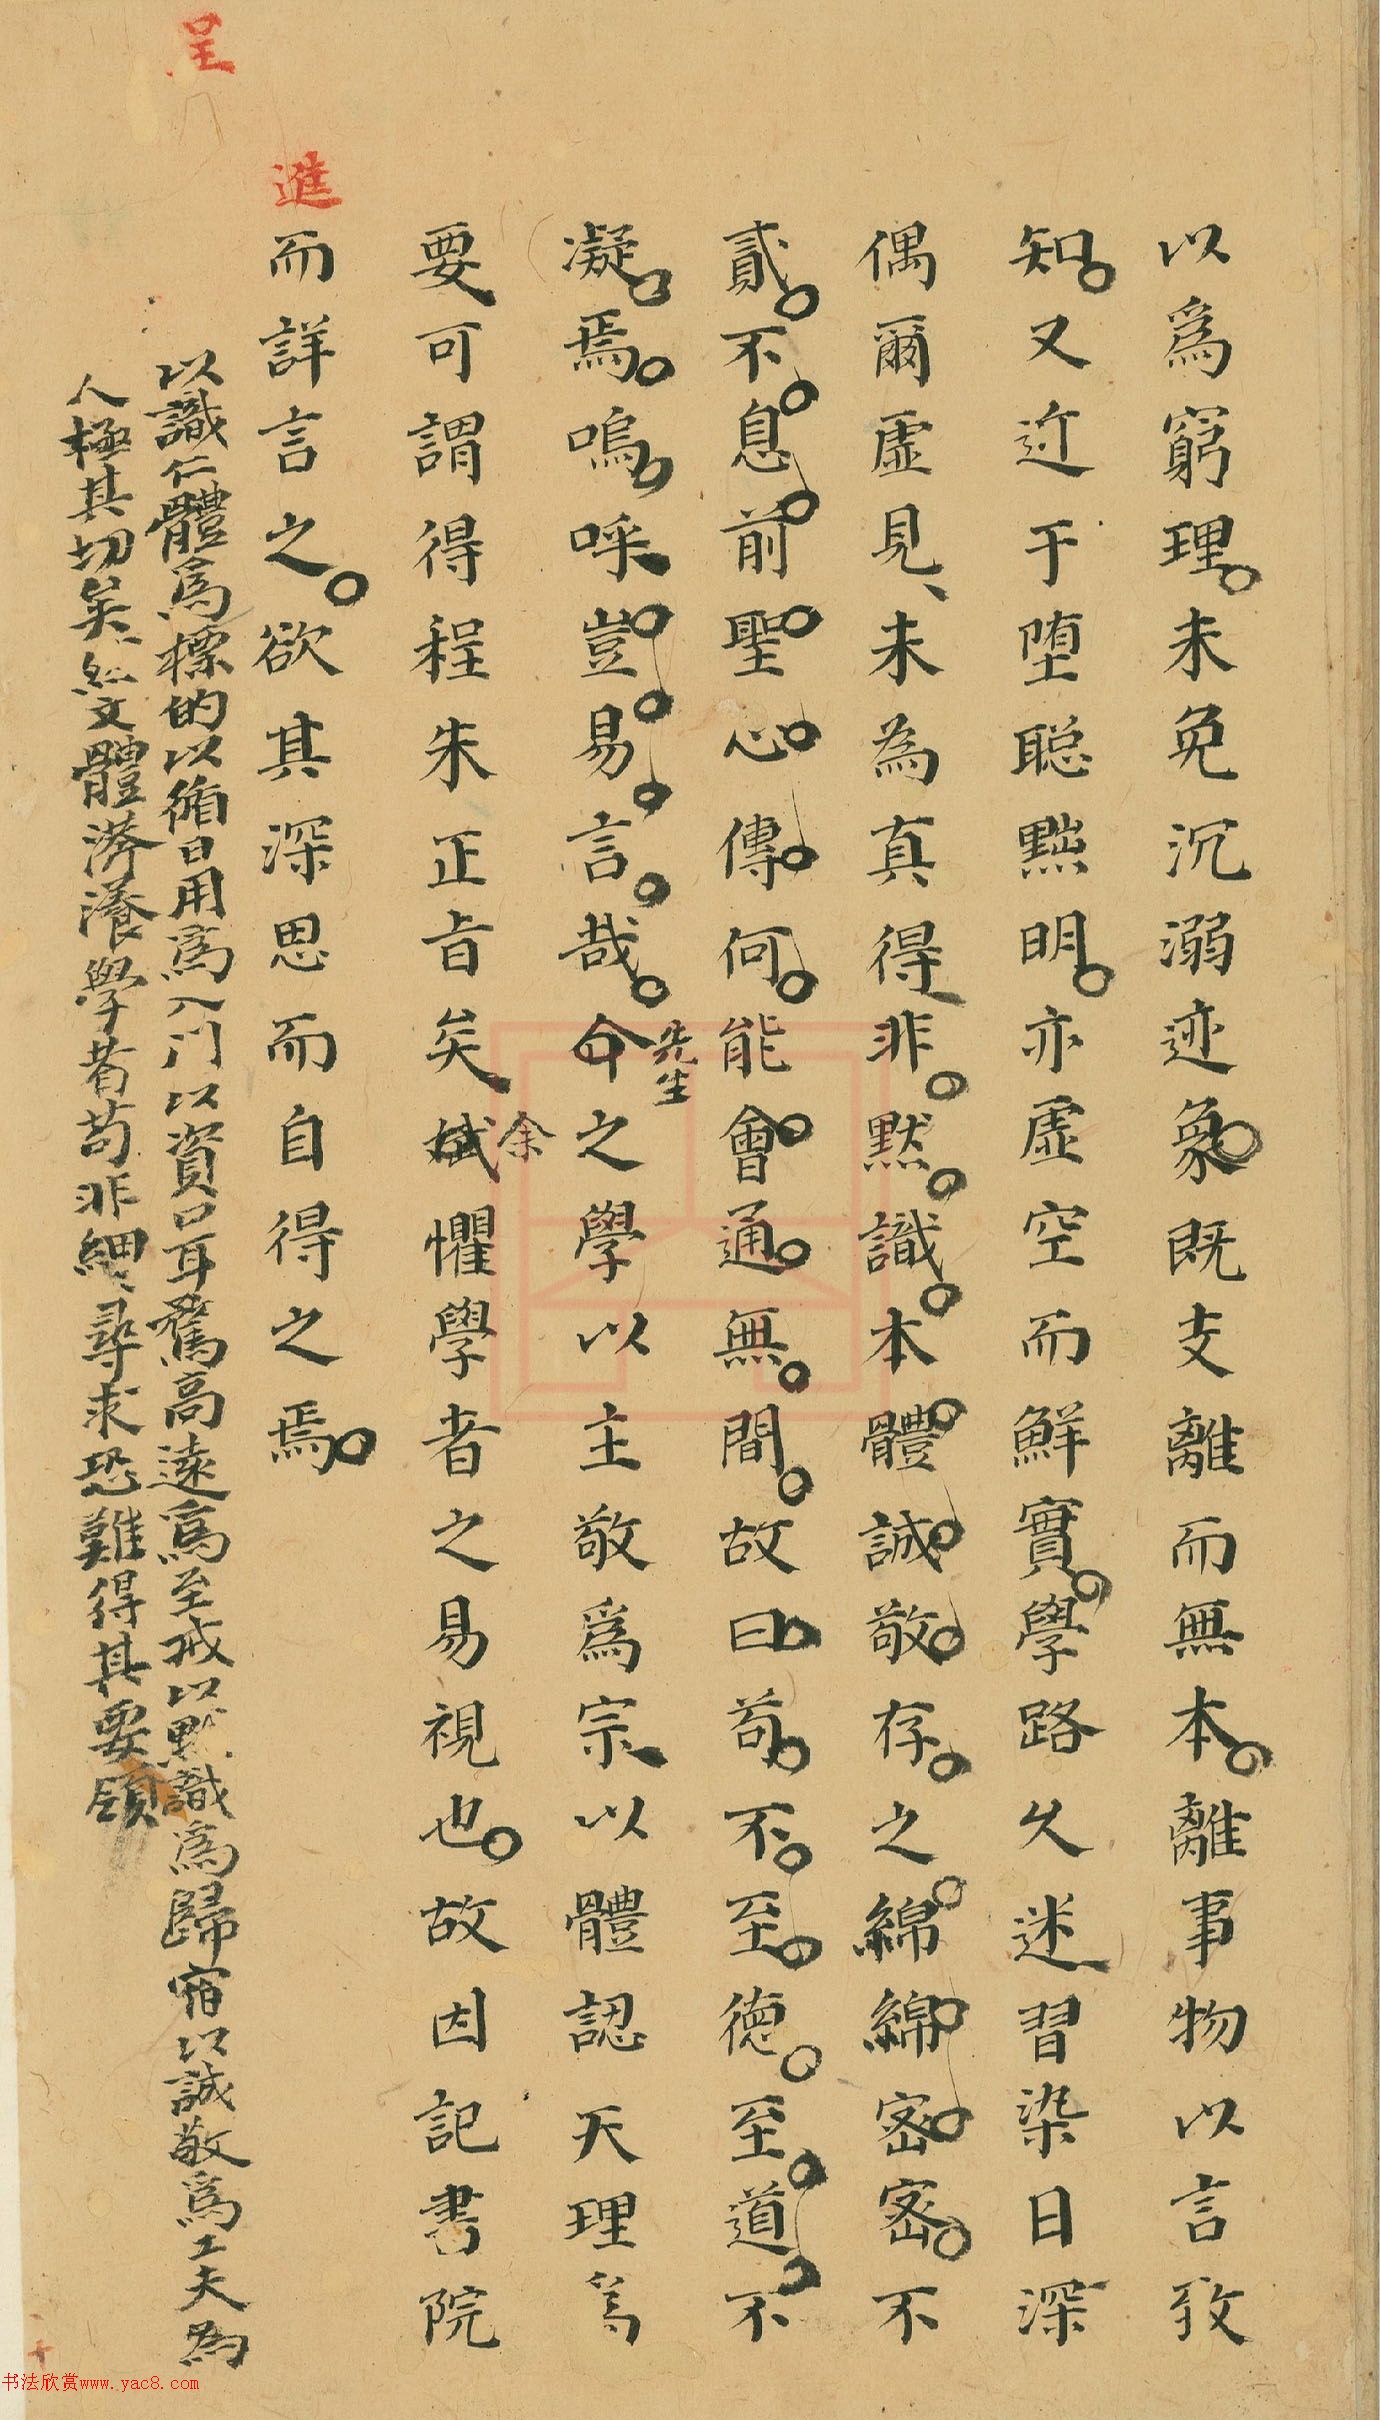 以爲窮理未免沉溺迹象既支離而無本離事物以言致
知又近于堕聪黜明亦虚空而鮮實學路久迷習染日深
偶爾虚見未為真得非默識本體誠敬存之綿綿密密不
貳不息前聖心傳何能會通無間故曰苟不至德至道不
凝焉嗚呼豈易言哉今之學以主敬爲宗以體認天理爲
先生
要可謂得程朱正旨矣斌懼學者之易視也故因記書院
余
進
而詳言之欲其深思而自得之焉
呈
以識仁體爲標的以循日用爲入门以資口耳騖高遠爲至戒以默識爲歸宿以誠敬爲工夫為
人極其切矣文體渟瀁學者苟非細尋求恐難得其要領
书法欣赏www.yac8.com